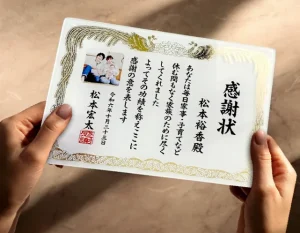 感謝状
松本裕香殿
あなたは毎日家事・子育てなど
休む間もなく家族のために尽く
してくれました
よってその功績を称えここに
感謝の意を表します
令和六年十月二十三日
松本宏太